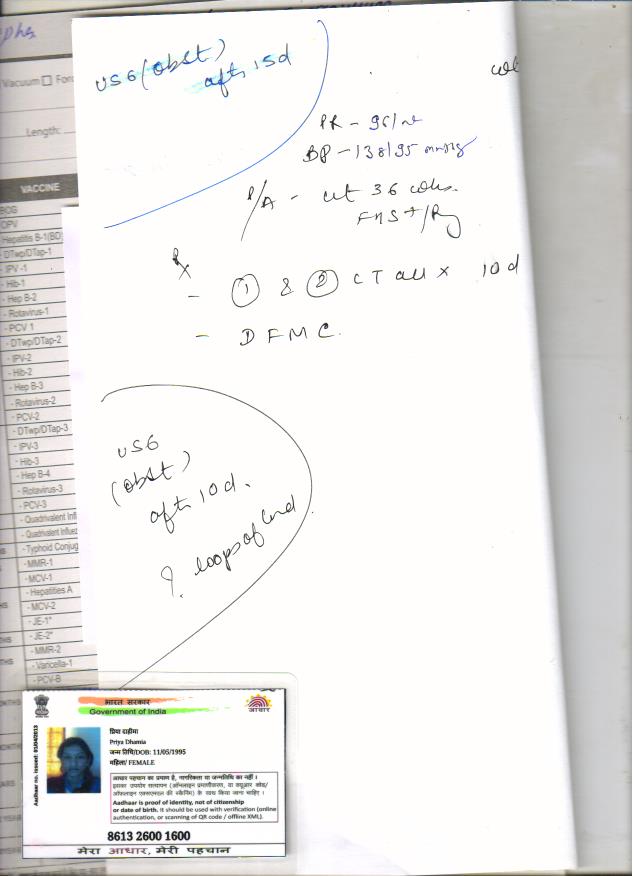 Vacuum
Length:
VACCINE
BCG
OPV
Hepatitis B-1(BD)
DTwp/DTap-1
- IPV -1
- Hib-1
- Hep B-2
- Rotavirus-1
- PCV 1
- DTwp/DTap-2
- IPV-2
- Hib-2
- Hep B-3
- Rotavirus-2
- PCV-2
- DTwp/DTap-3
- IPV-3
- Hib-3
- Hep B-4
- Rotavirus-3
- PCV-3
- Quadrivalent
- Quadrivalent
- Typhoid Conjug
- MMR-1
- MCV-1
- Hepatities A
- MCV-2
- JE-1*
- JE-2*
- MMR-2
- Varicella-1
- PCV-B
USG (obst)
after 15d
PR - 96/
BP - 138/95 mmHg
P/A - ut 36 wks.
FHS +/Rg
Rx
- ① & ② CT all x 10d
- DFMC.
USG
(obst)
after 10d.
?. loops of cord
भारत सरकार
Government of India
आधार
Aadhaar no. issued: 01/04/2013
Priya Dhamia
जन्म तिथि/DOB: 11/05/1995
महिला/ FEMALE
आधार पहचान का प्रमाण है, नागरिकता या जन्मतिथि का नहीं ।
इसका उपयोग सत्यापन (ऑनलाइन प्रमाणीकरण, या क्यूआर कोड/
ऑफलाइन एक्सएमएल की स्कैनिंग) के साथ किया जाना चाहिए ।
Aadhaar is proof of identity, not of citizenship
or date of birth. It should be used with verification (online
authentication, or scanning of QR code / offline XML).
8613 2600 1600
मेरा आधार, मेरी पहचान